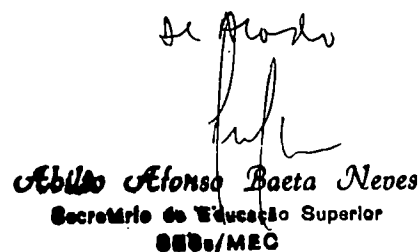 De Acordo
Abilio Afonso Baeta Neves
Secretário de Educação Superior
SESu/MEC